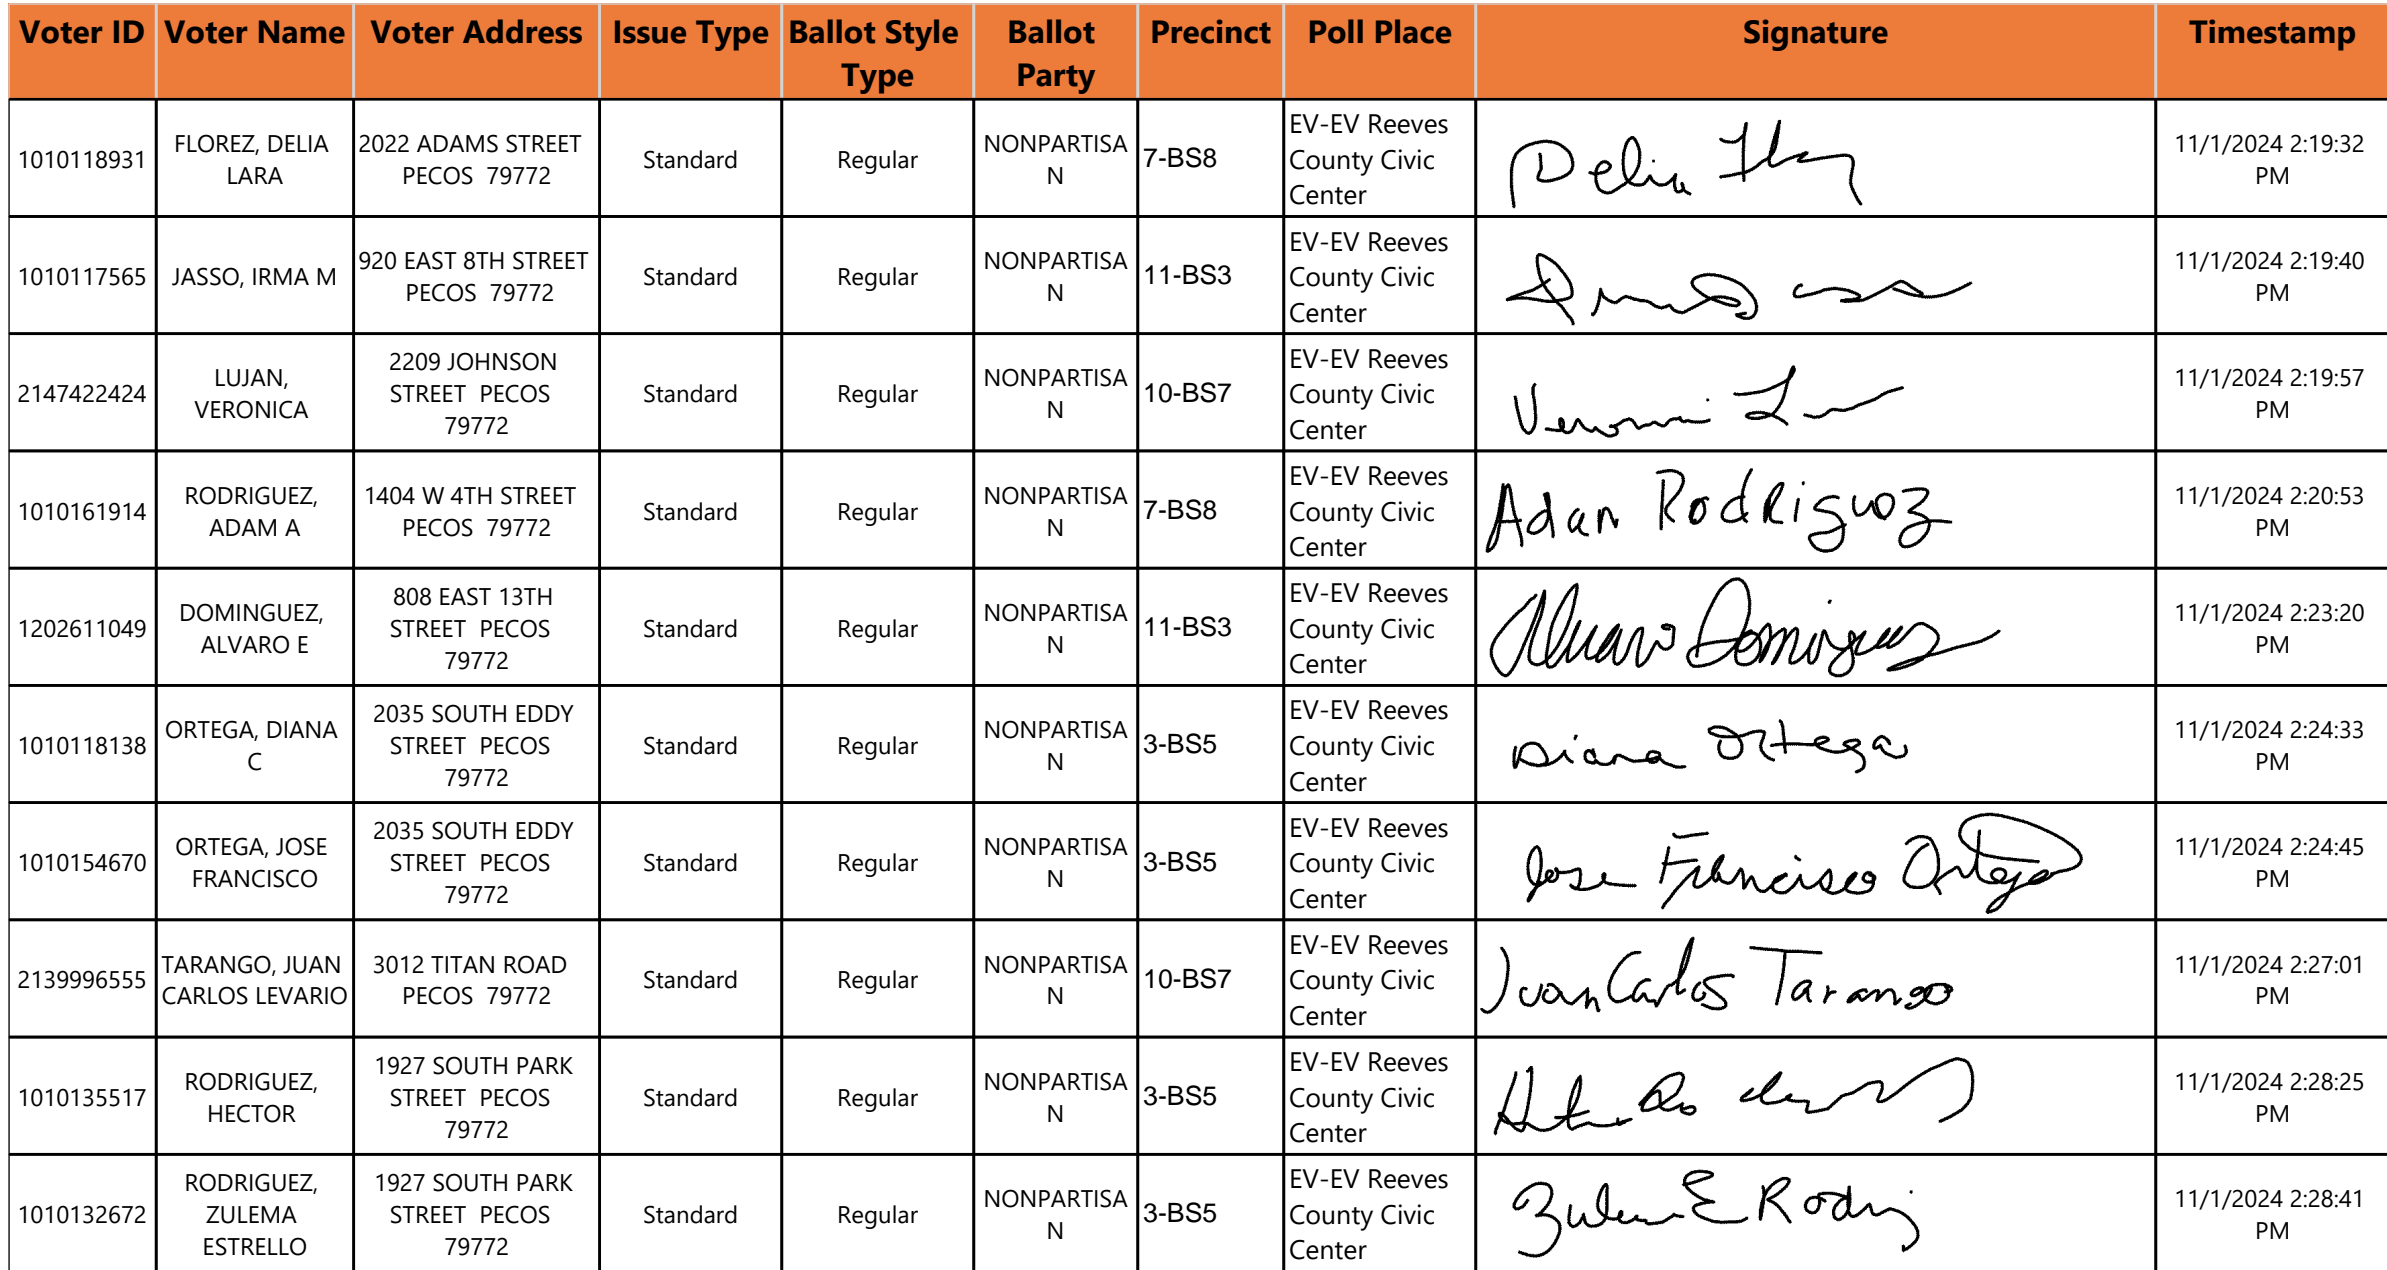 Voter ID Voter Name Voter Address Issue Type Ballot Style Type Ballot Party Precinct Poll Place Signature Timestamp
1010118931 FLOREZ, DELIA LARA 2022 ADAMS STREET PECOS 79772 Standard Regular NONPARTISAN 7-BS8 EV-EV Reeves County Civic Center Delia 11/1/2024 2:19:32 PM
1010117565 JASSO, IRMA M 920 EAST 8TH STREET PECOS 79772 Standard Regular NONPARTISAN 11-BS3 EV-EV Reeves County Civic Center 11/1/2024 2:19:40 PM
2147422424 LUJAN, VERONICA 2209 JOHNSON STREET PECOS 79772 Standard Regular NONPARTISAN 10-BS7 EV-EV Reeves County Civic Center 11/1/2024 2:19:57 PM
1010161914 RODRIGUEZ, ADAM A 1404 W 4TH STREET PECOS 79772 Standard Regular NONPARTISAN 7-BS8 EV-EV Reeves County Civic Center Adan Rodriguez 11/1/2024 2:20:53 PM
1202611049 DOMINGUEZ, ALVARO E 808 EAST 13TH STREET PECOS 79772 Standard Regular NONPARTISAN 11-BS3 EV-EV Reeves County Civic Center Alvaro Dominguez 11/1/2024 2:23:20 PM
1010118138 ORTEGA, DIANA C 2035 SOUTH EDDY STREET PECOS 79772 Standard Regular NONPARTISAN 3-BS5 EV-EV Reeves County Civic Center Diana Ortega 11/1/2024 2:24:33 PM
1010154670 ORTEGA, JOSE FRANCISCO 2035 SOUTH EDDY STREET PECOS 79772 Standard Regular NONPARTISAN 3-BS5 EV-EV Reeves County Civic Center Jose Francisco Ortega 11/1/2024 2:24:45 PM
2139996555 TARANGO, JUAN CARLOS LEVARIO 3012 TITAN ROAD PECOS 79772 Standard Regular NONPARTISAN 10-BS7 EV-EV Reeves County Civic Center Juan Carlos Tarango 11/1/2024 2:27:01 PM
1010135517 RODRIGUEZ, HECTOR 1927 SOUTH PARK STREET PECOS 79772 Standard Regular NONPARTISAN 3-BS5 EV-EV Reeves County Civic Center 11/1/2024 2:28:25 PM
1010132672 RODRIGUEZ, ZULEMA ESTRELLO 1927 SOUTH PARK STREET PECOS 79772 Standard Regular NONPARTISAN 3-BS5 EV-EV Reeves County Civic Center E 11/1/2024 2:28:41 PM